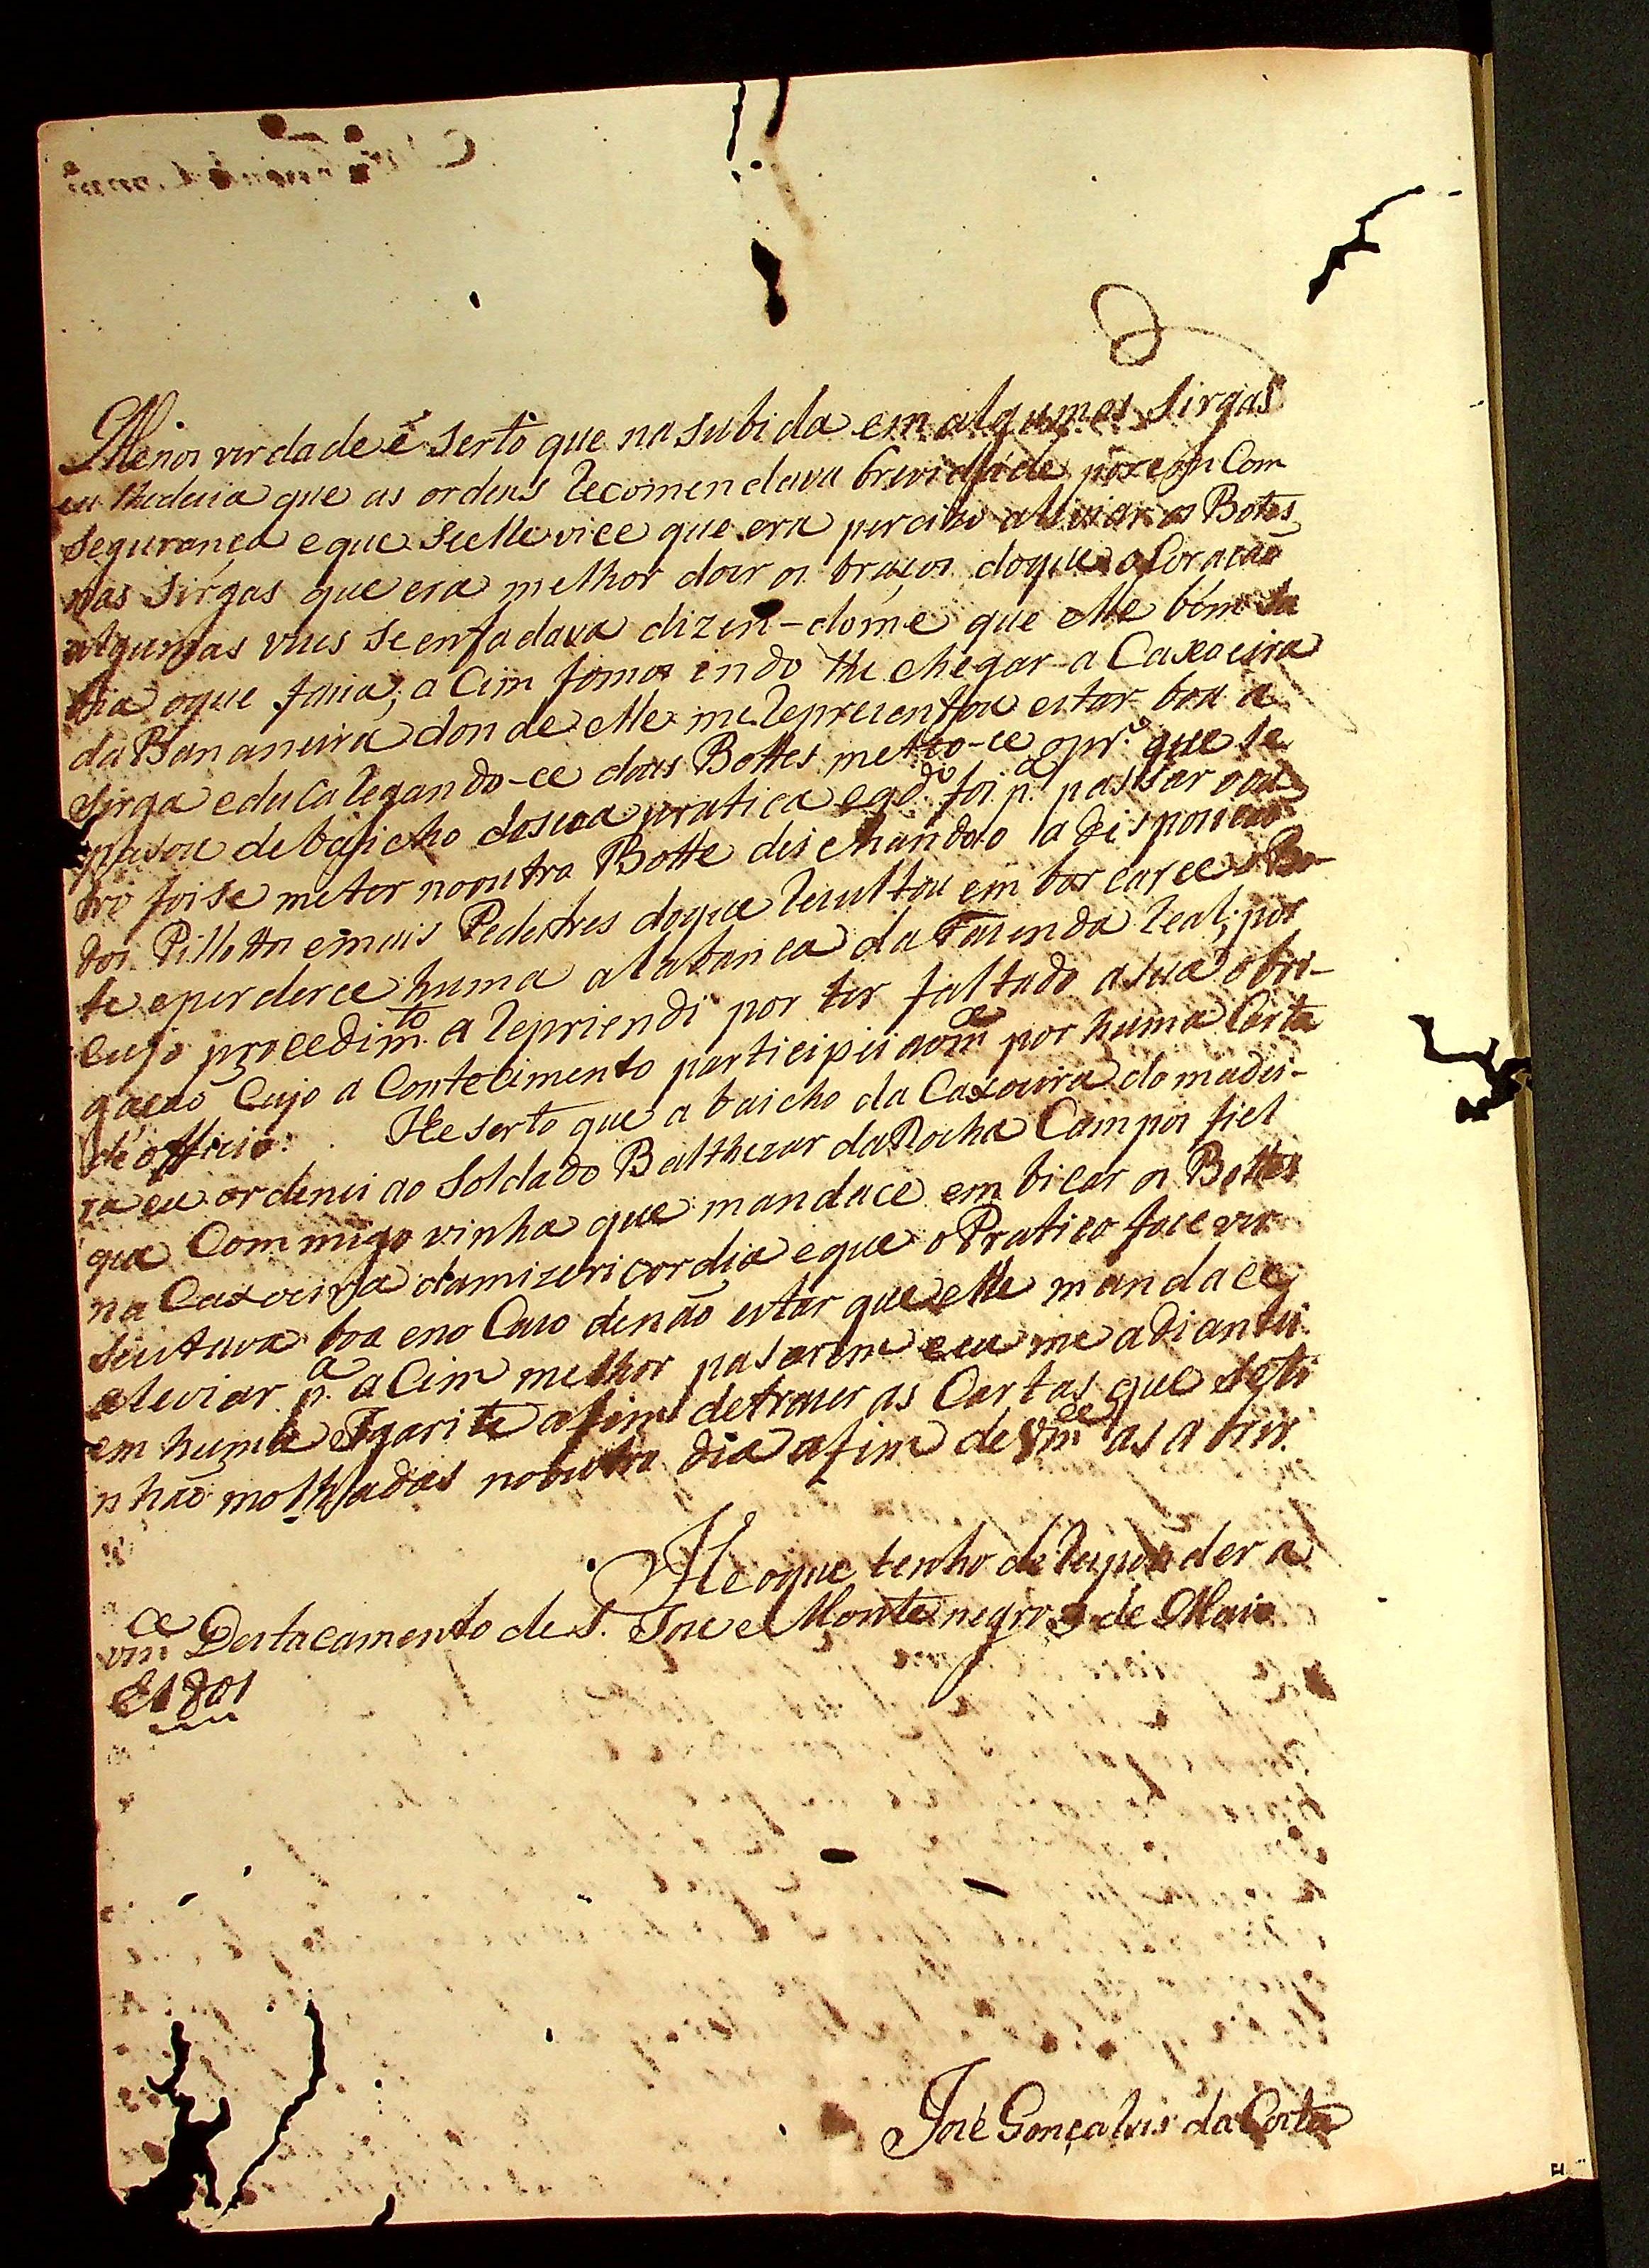 Menos verdade é serto que na subida em algumas sirgas
eu lhe dezia que as ordens recomendava brividade porem com
segurança e que se elle vice que era percizo aliviar os Botes
nas sirgas que era melhor doer os braços do que o Coração
algumas vezes se enfadava dizen-dome que elle bem sa
bia o que fazia; a Cim fomos indo the chegar a Caxoeira
da Bananeira donde elle me reprezentou estar boa a
sirga e descaregando-ce dous Bottes metto-ce o pr.º que se
pasou debaicho de sua pratica e qdº. foi p.ª passar o ou
tro foi se meter no outro Botte deichando o a disposição
dos Pillotos e mais Pedestres do que rezultou embarcarce o Bo-
te e perderce huma alabanca da Fazenda real; por
cujo procedim.to o repriendi por ter faltado a sua obri-
gação Cujo a Contecimento participei a vm.ce por huma Carta
de officio. He serto que a baicho da Caxoeira do madei-
ra eu ordenei ao soldado Balthezar da Rocha Campos fiel
que Commigo vinha que mandace embicar os Bottes
na Caxoeira da mizericordia e que o Pratico foce ver
se estava boa e no Cazo de não estar que elle mandace
aleviar p.ª a Cim melhor pasarem e eu me adiantei
em huma Igarite afim de trazer as Cartas que se ti
nhão molhadas no outro dia afim de Vm.ce as abrir.
He o que tenho de responder a
vm.ce Destacamento de S. Joze e Montenegro de Maio
de 1801
José Gonçalvis da Costa